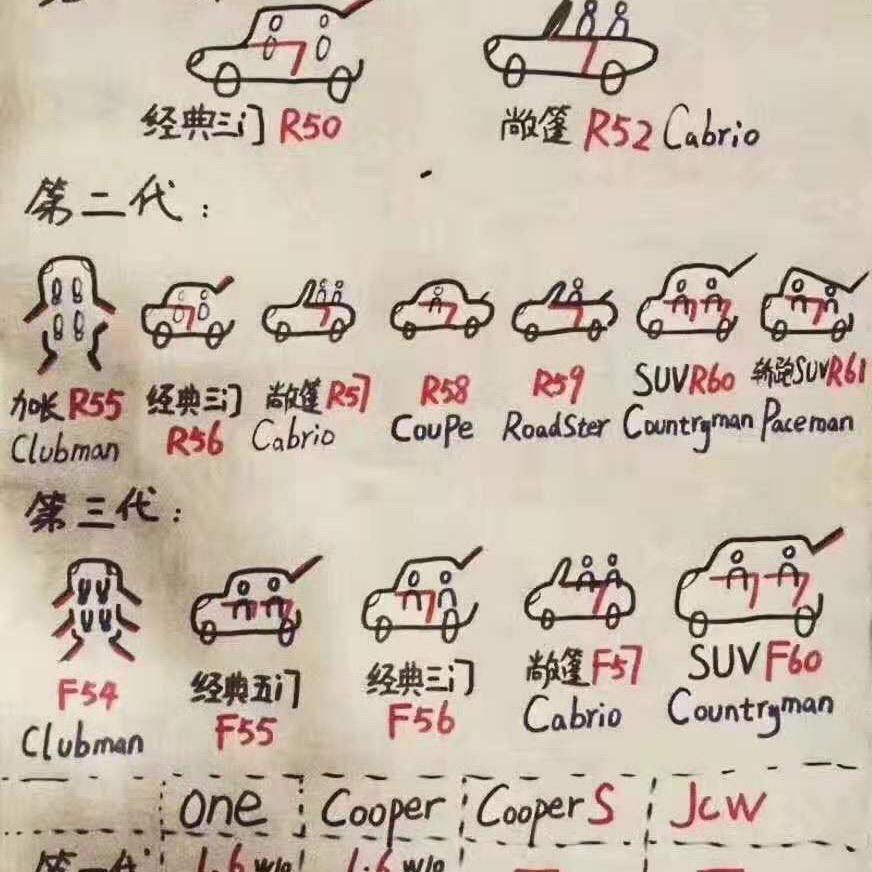 经典三门 R50
敞篷 R52 Cabrio
第二代：
加长 R55
Clubman
经典三门
R56
敞篷 R57
Cabrio
R58
Coupe
R59
RoadSter
SUV R60
Countryman
轿跑SUV R61
Paceman
第三代：
F54
Clubman
经典五门
F55
经典三门
F56
敞篷 F57
Cabrio
SUV F60
Countryman
One Cooper Cooper S JCW
第一代 1.6 1.6